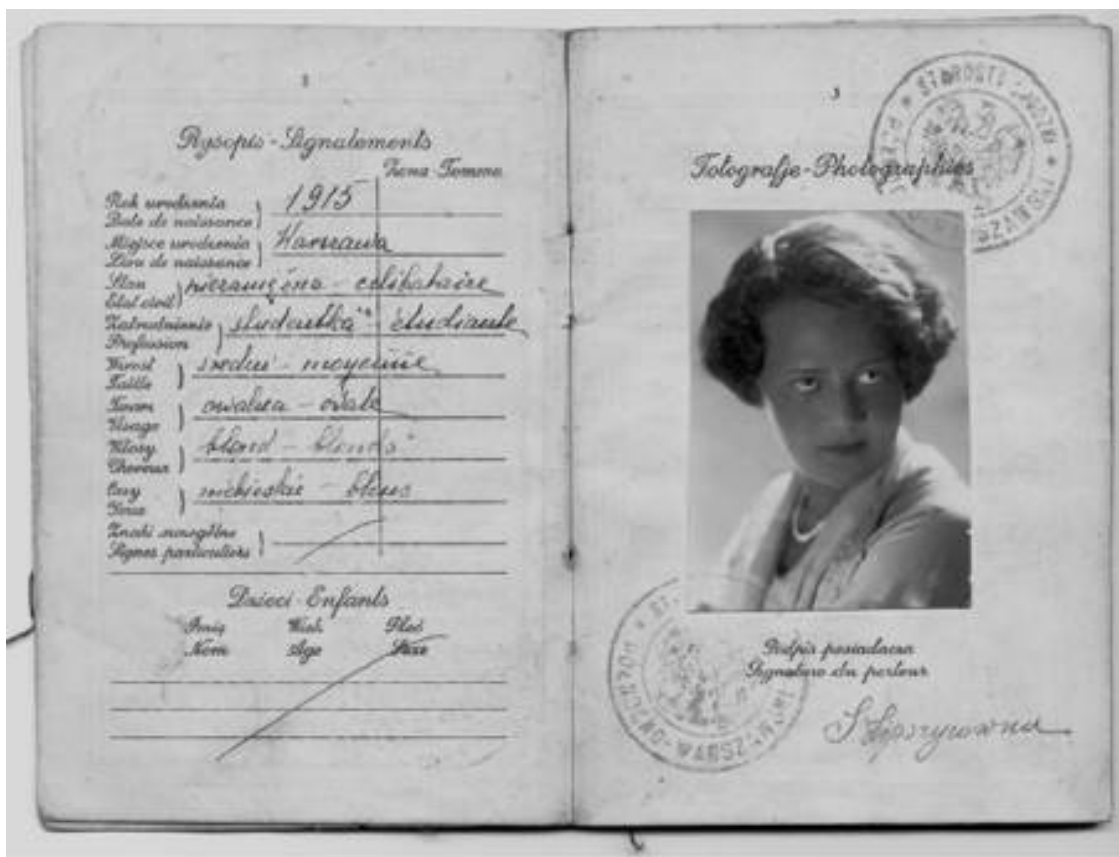 Rysopis - Signalements
Żona Femme
Rok urodzenia
Date de naissance
1915
Miejsce urodzenia
Lieu de naissance
Warszawa
Stan
État civil
niezamężna - célibataire
Zatrudnienie
Profession
studentka - étudiante
Wzrost
Taille
średni - moyenne
Twarz
Visage
owalna - ovale
Włosy
Cheveux
blond - blonds
Oczy
Yeux
niebieskie - bleus
Znaki szczególne
Signes particuliers
Dzieci - Enfants
Imię Wiek Płeć
Nom Age Sexe
3
Fotografje - Photographies
STAROSTA GRODZKI
Podpis posiadacza
Signature du porteur